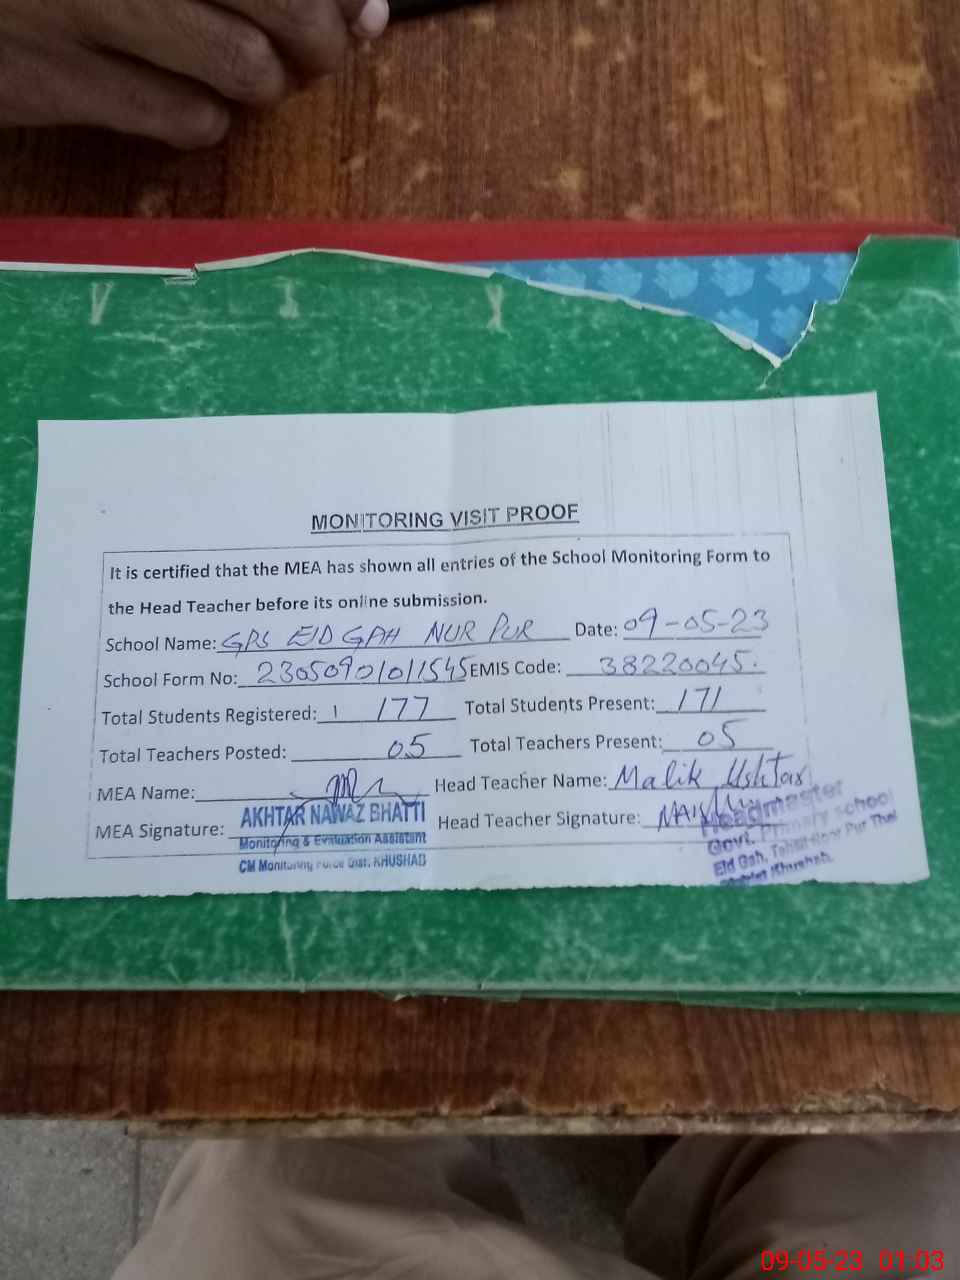 V I X
MONITORING VISIT PROOF
It is certified that the MEA has shown all entries of the School Monitoring Form to
the Head Teacher before its online submission.
School Name: GPS EID GAH NUR PUR Date: 09-05-23
School Form No: 23050901011545 EMIS Code: 38220045.
Total Students Registered: 177 Total Students Present: 171
Total Teachers Posted: 05 Total Teachers Present: 05
MEA Name: Head Teacher Name: Malik
MEA Signature: Head Teacher Signature:
AKHTAR NAWAZ BHATTI
Monitoring & Evaluation Assistant
CM Monitoring Force Dist. KHUSHAB
Headmaster
Govt. Primary School
Eid Gah, Tehsil Noor Pur Thal
District Khushab.
09-05-23 01:03